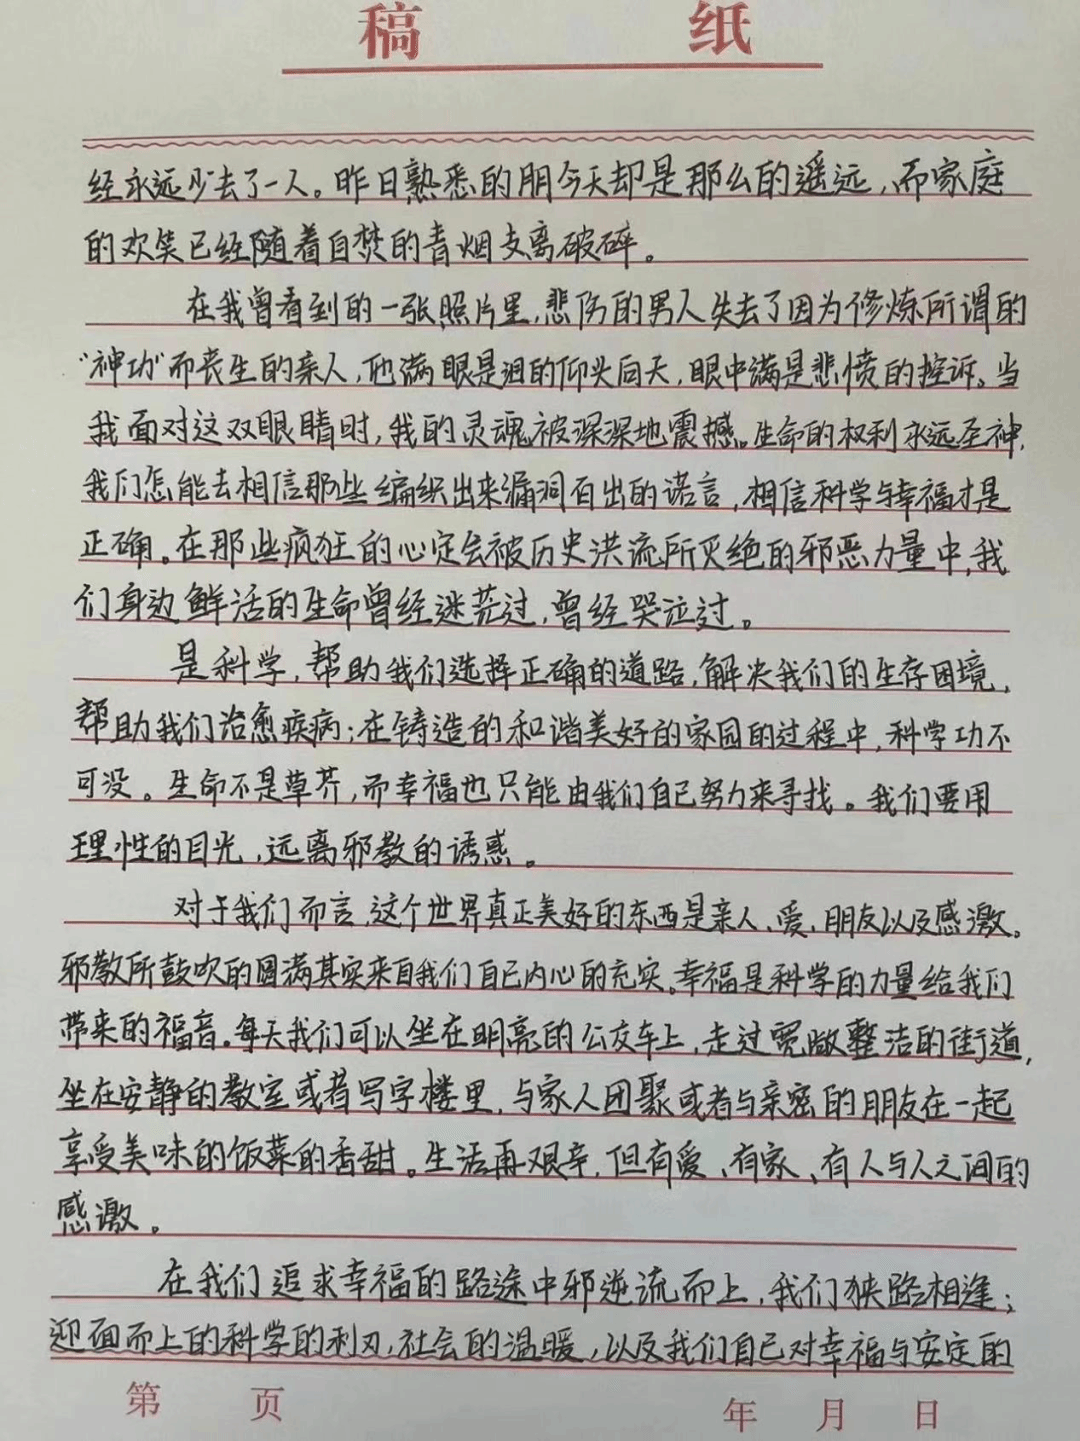 稿 纸
经永远少去了一人。昨日熟悉的朋今天却是那么的遥远,而家庭
的欢笑已经随着自焚的青烟支离破碎。
在我曾看到的一张照片里,悲伤的男人失去了因为修炼所谓的
“神功”而丧生的亲人,他满眼是泪的仰头向天,眼中满是悲愤的控诉。当
我面对这双眼睛时,我的灵魂被深深地震撼。生命的权利永远圣神,
我们怎能去相信那些编织出来漏洞百出的诺言,相信科学与幸福才是
正确。在那些疯狂的心定会被历史洪流所灭绝的邪恶力量中,我
们身边鲜活的生命曾经迷茫过,曾经哭泣过。
是科学,帮助我们选择正确的道路,解决我们的生存困境,
帮助我们治愈疾病;在铸造的和谐美好的家园的过程中,科学功不
可没。生命不是草芥,而幸福也只能由我们自己努力来寻找。我们要用
理性的目光,远离邪教的诱惑。
对于我们而言,这个世界真正美好的东西是亲人、爱,朋友以及感激。
邪教所鼓吹的圆满其实来自我们自己内心的充实。幸福是科学的力量给我们
带来的福音。每天我们可以坐在明亮的公交车上,走过宽敞整洁的街道,
坐在安静的教室或者写字楼里,与家人团聚或者与亲密的朋友在一起
享受美味的饭菜的香甜。生活再艰辛,但有爱、有家、有人与人之间的
感激。
在我们追求幸福的路途中邪逆流而上,我们狭路相逢;
迎面而上的科学的利刃,社会的温暖,以及我们自己对幸福与安定的
第 页 年 月 日